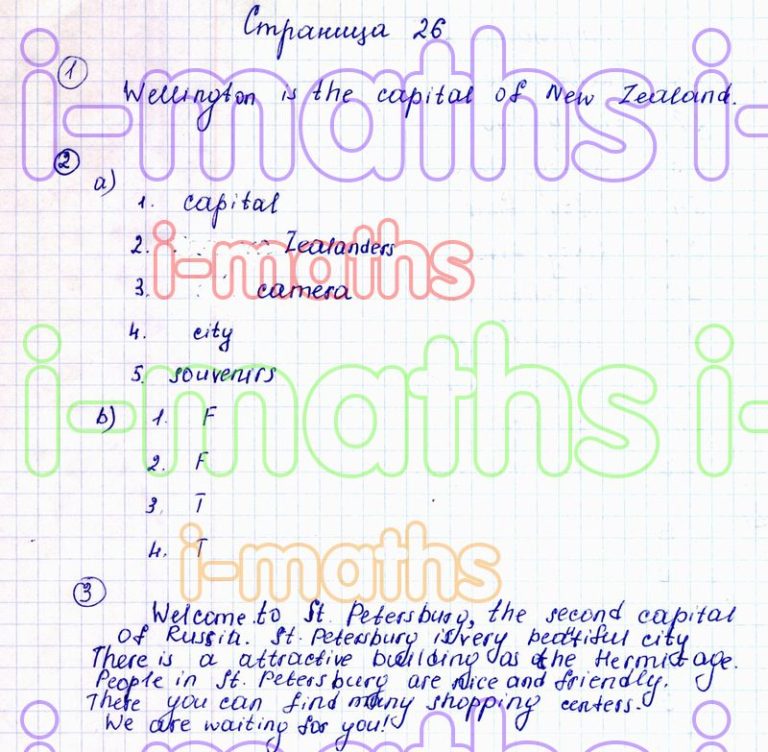 Страница 26
1
Wellington is the capital of New Zealand.
2
a)
1. capital
2. Zealanders
3. camera
4. city
5. souvenirs
b) 1. F
2. F
3. T
4. T
3
Welcome to St. Petersburg, the second capital
of Russia. St. Petersburg is very beatiful city
There is a attractive building as the Hermitage.
People in St. Petersburg are nice and friendly.
There you can find many shopping centers.
We are waiting for you!
i-maths i-
i-maths
i-maths i-
i-maths